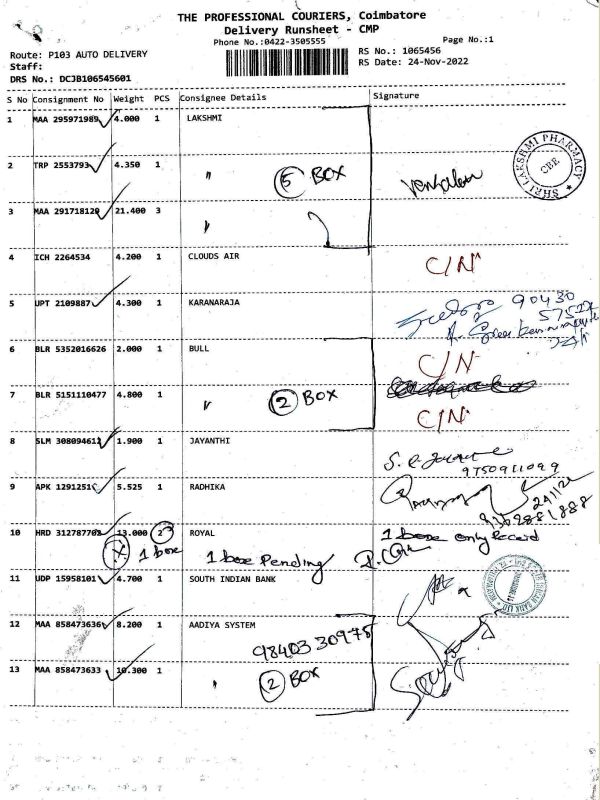 THE PROFESSIONAL COURIERS, Coimbatore
Delivery Runsheet - CMP
Phone No.:0422-3505555 Page No.:1
Route: P103 AUTO DELIVERY RS No.: 1065456
Staff: RS Date: 24-Nov-2022
DRS No.: DCJB106545601
S No Consignment No Weight PCS Consignee Details Signature
1 MAA 295971989 4.000 1 LAKSHMI
SHRI LAKSHMI PHARMACY
CBE
2 TRP 2553793 4.350 1 " 5 BOX
3 MAA 291718129 21.400 3 "
4 ICH 2264534 4.200 1 CLOUDS AIR C/N
5 UPT 2109887 4.300 1 KARANARAJA 90430
6 BLR 5352016626 2.000 1 BULL C/N
7 BLR 5151110477 4.800 1 " 2 BOX C/N
8 SLM 308094611 1.900 1 JAYANTHI
9750911099
9 APK 1291251 5.525 1 RADHIKA
10 HRD 312787703 13.000 2 ROYAL 1 boxe only
1 boxe 1 boxe Pending
11 UDP 15958101 4.700 1 SOUTH INDIAN BANK
12 MAA 858473636 8.200 1 AADIYA SYSTEM
98403 30975
13 MAA 858473633 10.300 1 " 2 BOX